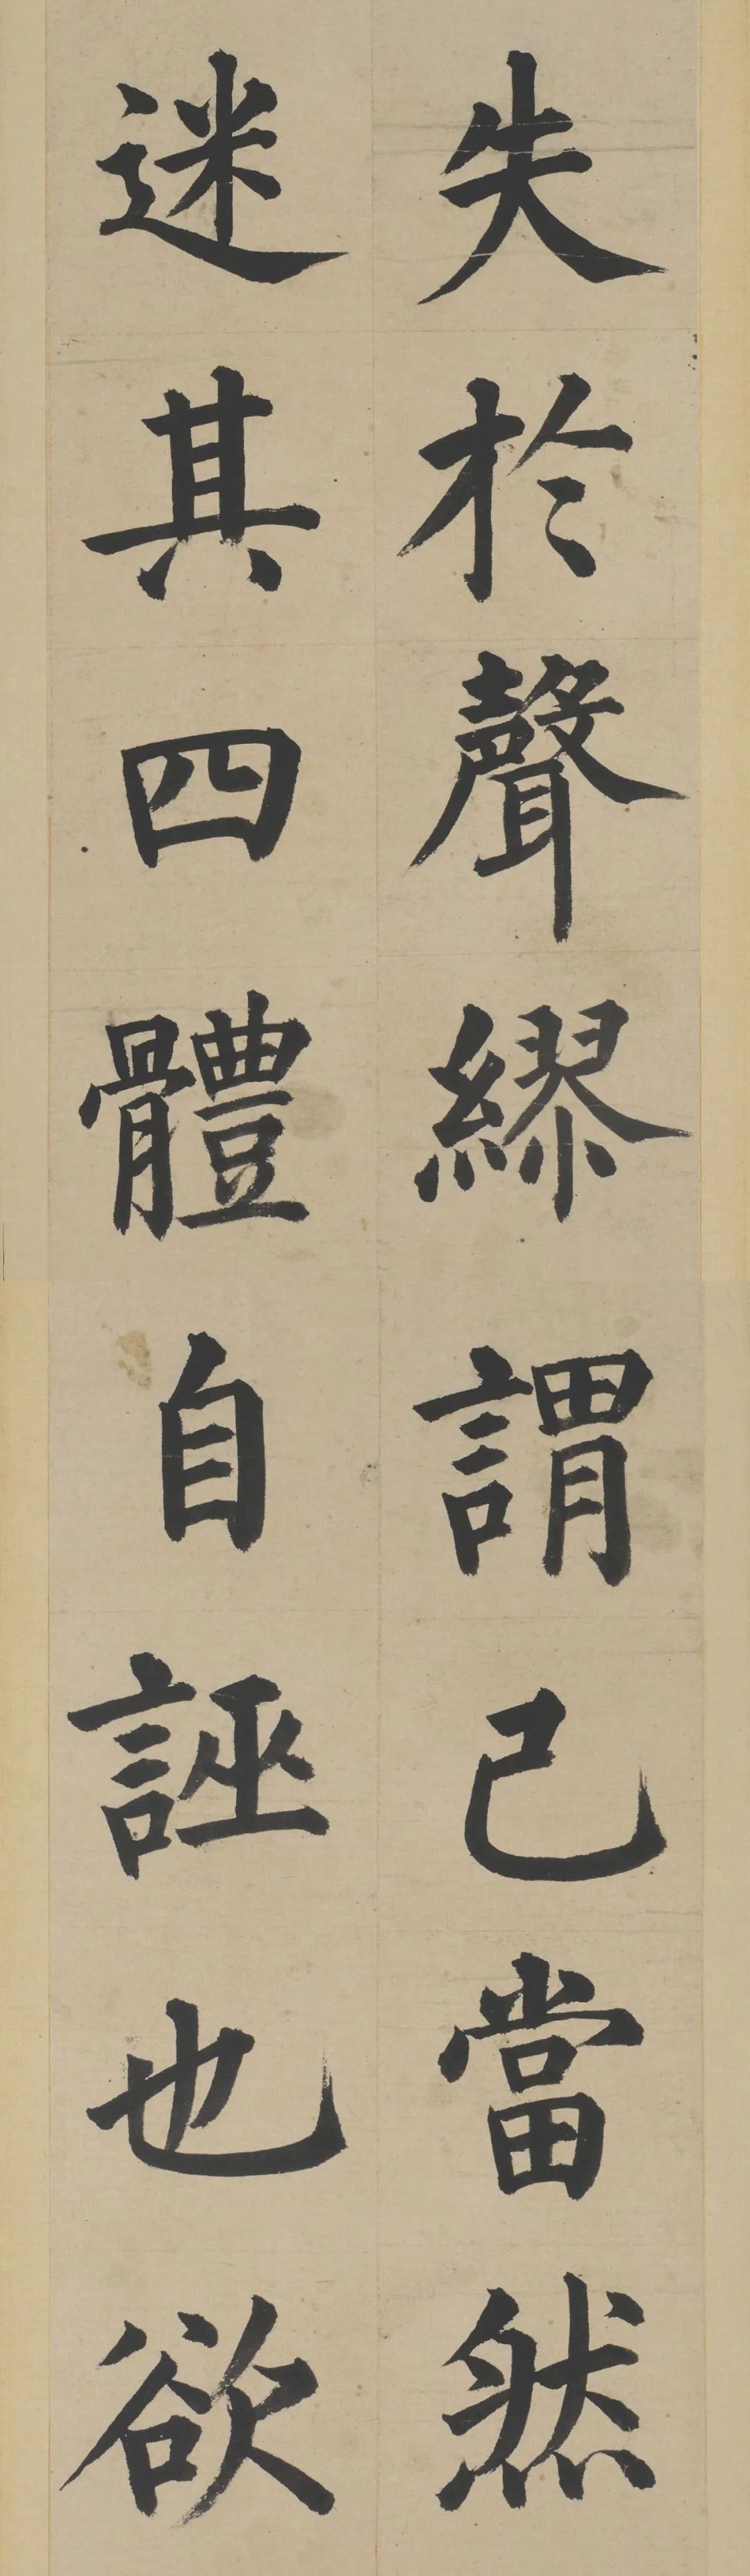 失於聲繆謂己當然
迷其四體自誣也欲